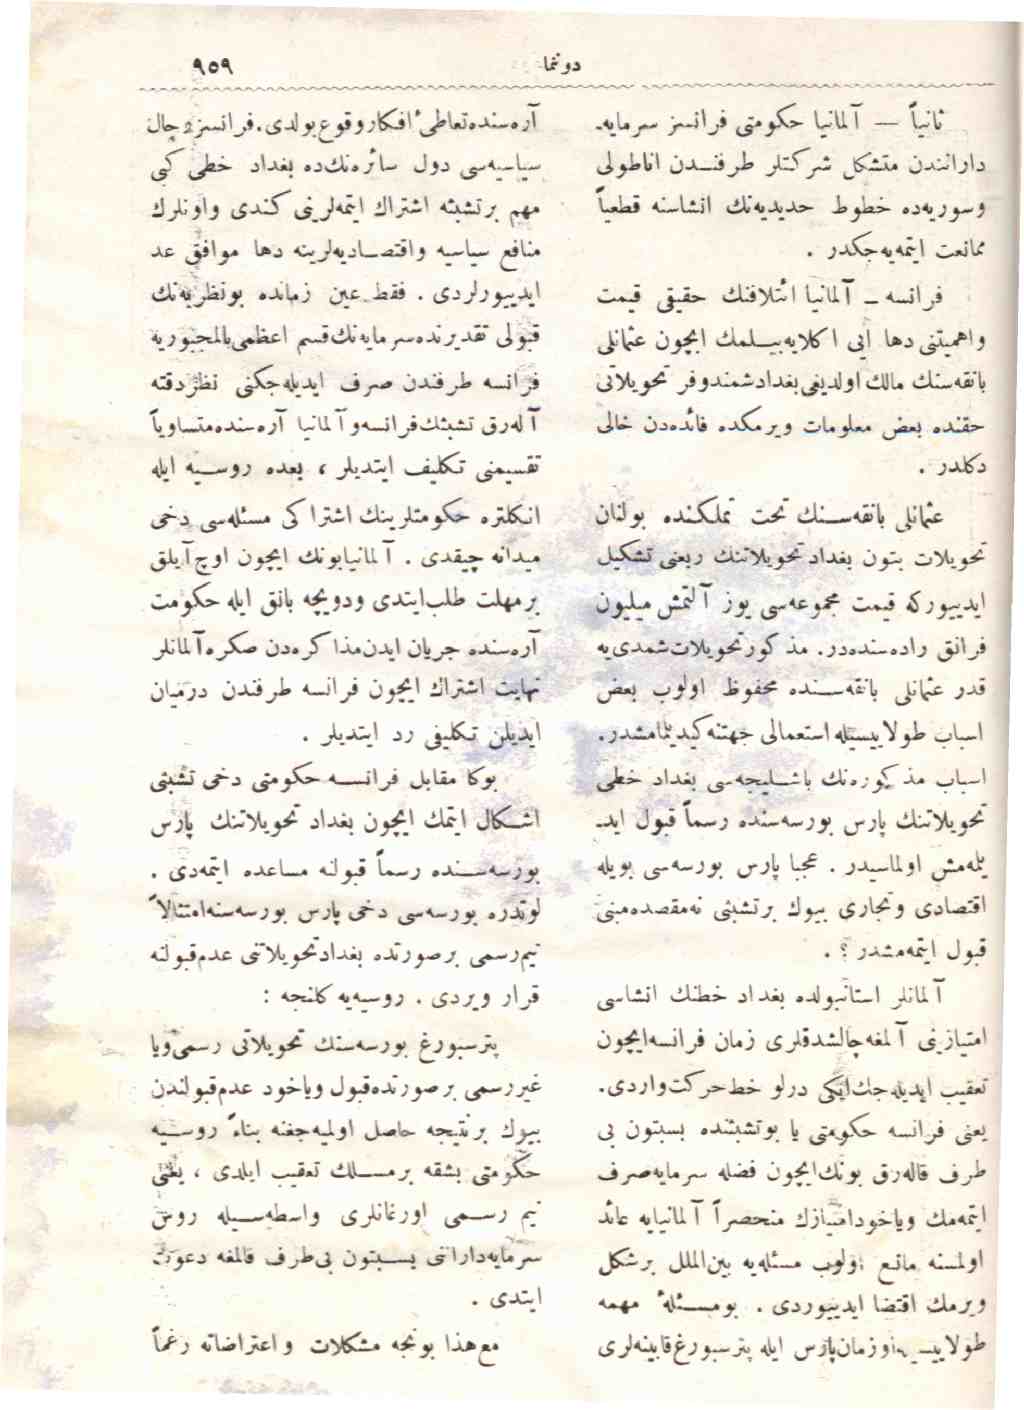 دوننما
٩٥٩
ثانیاً — آلمانیا حکومتی فرانسز سرمایه‌ـ
دارانندن متشکل شرکتلر طرفـنـدن اناطولی
وسوریه‌ده خطوط حدیدیه‌نك انشاسنه قطعیاً
ممانعت ایتمه‌یه‌جکدر .
فرانسه ـ آلمانیا ائتلافنك حقیقی قیمت
واهمیتنی دها ایی اکلایه‌بیـلمك ایچون عثمانلی
بانقه‌سنك مالك اولدیغی بغداد شمندوفر تحویلاتی
حقنده بعض معلومات ویرمکده فائده‌دن خالی
دکلدر .
عثمانلی بانقه‌سـنك تحت تملکـنده بولنان
تحویلات بتون بغداد تحویلاتنك ربعنی تشکیل
ایدییورکه قیمت مجموعه‌سی یوز آلتمش میلیون
فرانق راده‌سنده‌در. مذکور تحویلات شمدی‌یه
قدر عثمانلی بانقه‌سـنده محفوظ اولوب بعض
اسباب طولاییسیله استعمالی جهتنه کیدیلمامشدر.
اسباب مذکوره‌نك باشـلیجه‌سی بغداد خطی
تحویلاتنك پارس بورسه‌سنده رسماً قبول ایدـ
یلمه‌مش اولماسیدر . عجبا پارس بورسه‌سی بویله
اقتصادی وتجاری بیوك برتشبثی نه‌مقصده‌مبنی
قبول ایتمه‌مشدر ؟ .
آلمانلر استانبولده بغداد خطنك انشاسی
امتیازینی آلمغه‌چالشدقلری زمان فرانسه‌ایچون
تعقیب ایدیله‌جك‌ایکی درلو خط‌حرکت‌واردی.
یعنی فرانسه حکومتی یا بوتشبثنده بسبتون بی
طرف قاله‌رق بونك‌ایچون فضله سرمایه‌صرف
ایتمه‌مك ویاخودامتیازك منحصراً آلمانیایه عائد
اولمسنه مانع اولوب مسئله‌یه بین‌الملل برشکل
ویرمك اقتضا ایدییوردی . بومسـئلهٔ مهمه
طولاییسیله‌اوزمان‌پارس ایله پترسبورغ‌قابینه‌لری
آره‌سنده‌تعاطیٔ افکاروقوع‌بولدی.فرانسز رجال
سیاسیه‌سی دول سائره‌نك‌ده بغداد خطی کبی
مهم برتشبثه اشتراك ایتمه‌لرینی کندی واونلرك
منافع سیاسیه واقتصـادیه‌لرینه دها موافق عد
ایدییورلردی . فقط عین زمانده بونظریه‌نك
قبولی تقدیرنده‌سرمایه‌نك‌قسم اعظمی‌بالمجبوریه
فرانسه طرفندن صرف ایدیله‌جکنی نظردقته
آله‌رق تشبثك‌فرانسه‌وآلمانیا آره‌سنده‌متساویاً
تقسیمنی تکلیف ایتدیلر ، بعده روسـیه ایله
انـکلتره حکومتلرینك اشتراکی مسئله‌سی دخی
میدانه چیقدی . آلمانیابونك ایچون اوچ‌آیلق
برمهلت طلب‌ایتدی ودویچه بانق ایله حکومت
آره‌سنده جریان ایدن‌مذاکره‌دن صکره‌آلمانلر
نهایت اشتراك ایچون فرانسه طرفندن درمیان
ایدیلن تکلیفی رد ایتدیلر .
بوکا مقابل فرانسـه حکومتی دخی تشبثی
اشـکال ایتمك ایچون بغداد تحویلاتنك پارس
بورسه‌سـنده رسماً قبولنه مساعده ایتمه‌دی .
لوندره بورسه‌سی دخی پارس بورسه‌سنه‌امتثالاً
نیم‌رسمی برصورتده بغدادتحویلاتنی عدم‌قبولنه
قرار ویردی . روسیه‌یه کلنجه :
پترسبورغ بورسه‌سنك تحویلاتی رسمی‌ویا
غیررسمی برصورتده‌قبول ویاخود عدم‌قبولندن
بیوك برنتیجه حاصل اولمیه‌جغنه بناءً روسـیه
حکومتی بشقه برمسـلك تعقیب ایلدی ، یعنی
نیم رسـمی اورغانلری واسطه‌سـیله روس
سرمایه‌دارانی بسـبتون بی‌طرف قالمغه دعوت
ایتدی .
مع‌هذا بونجه مشکلات واعتراضاته رغماً